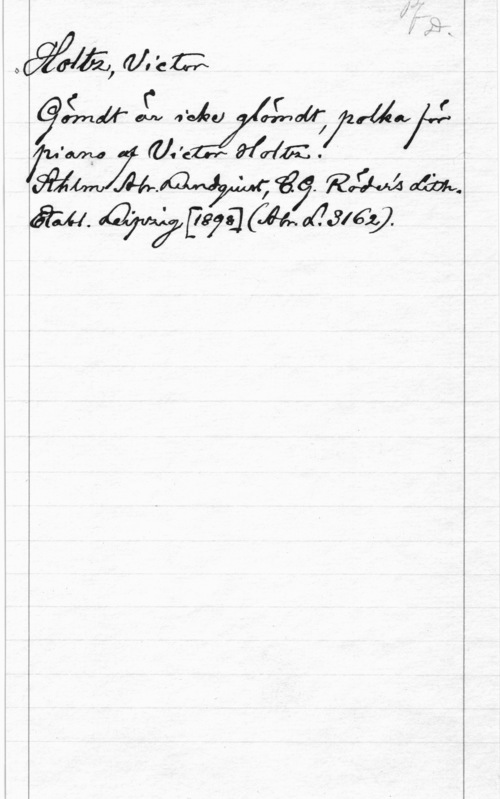 Pf
D.
Holtz, Victor
Gömdt är icke glömdt, polka för
piano af Victor Holtz.
Sthlm Abr. Lundquist, C.G. Röder's Lith.
Etabl. Leipzig [1898] (Abr. L. 3162).